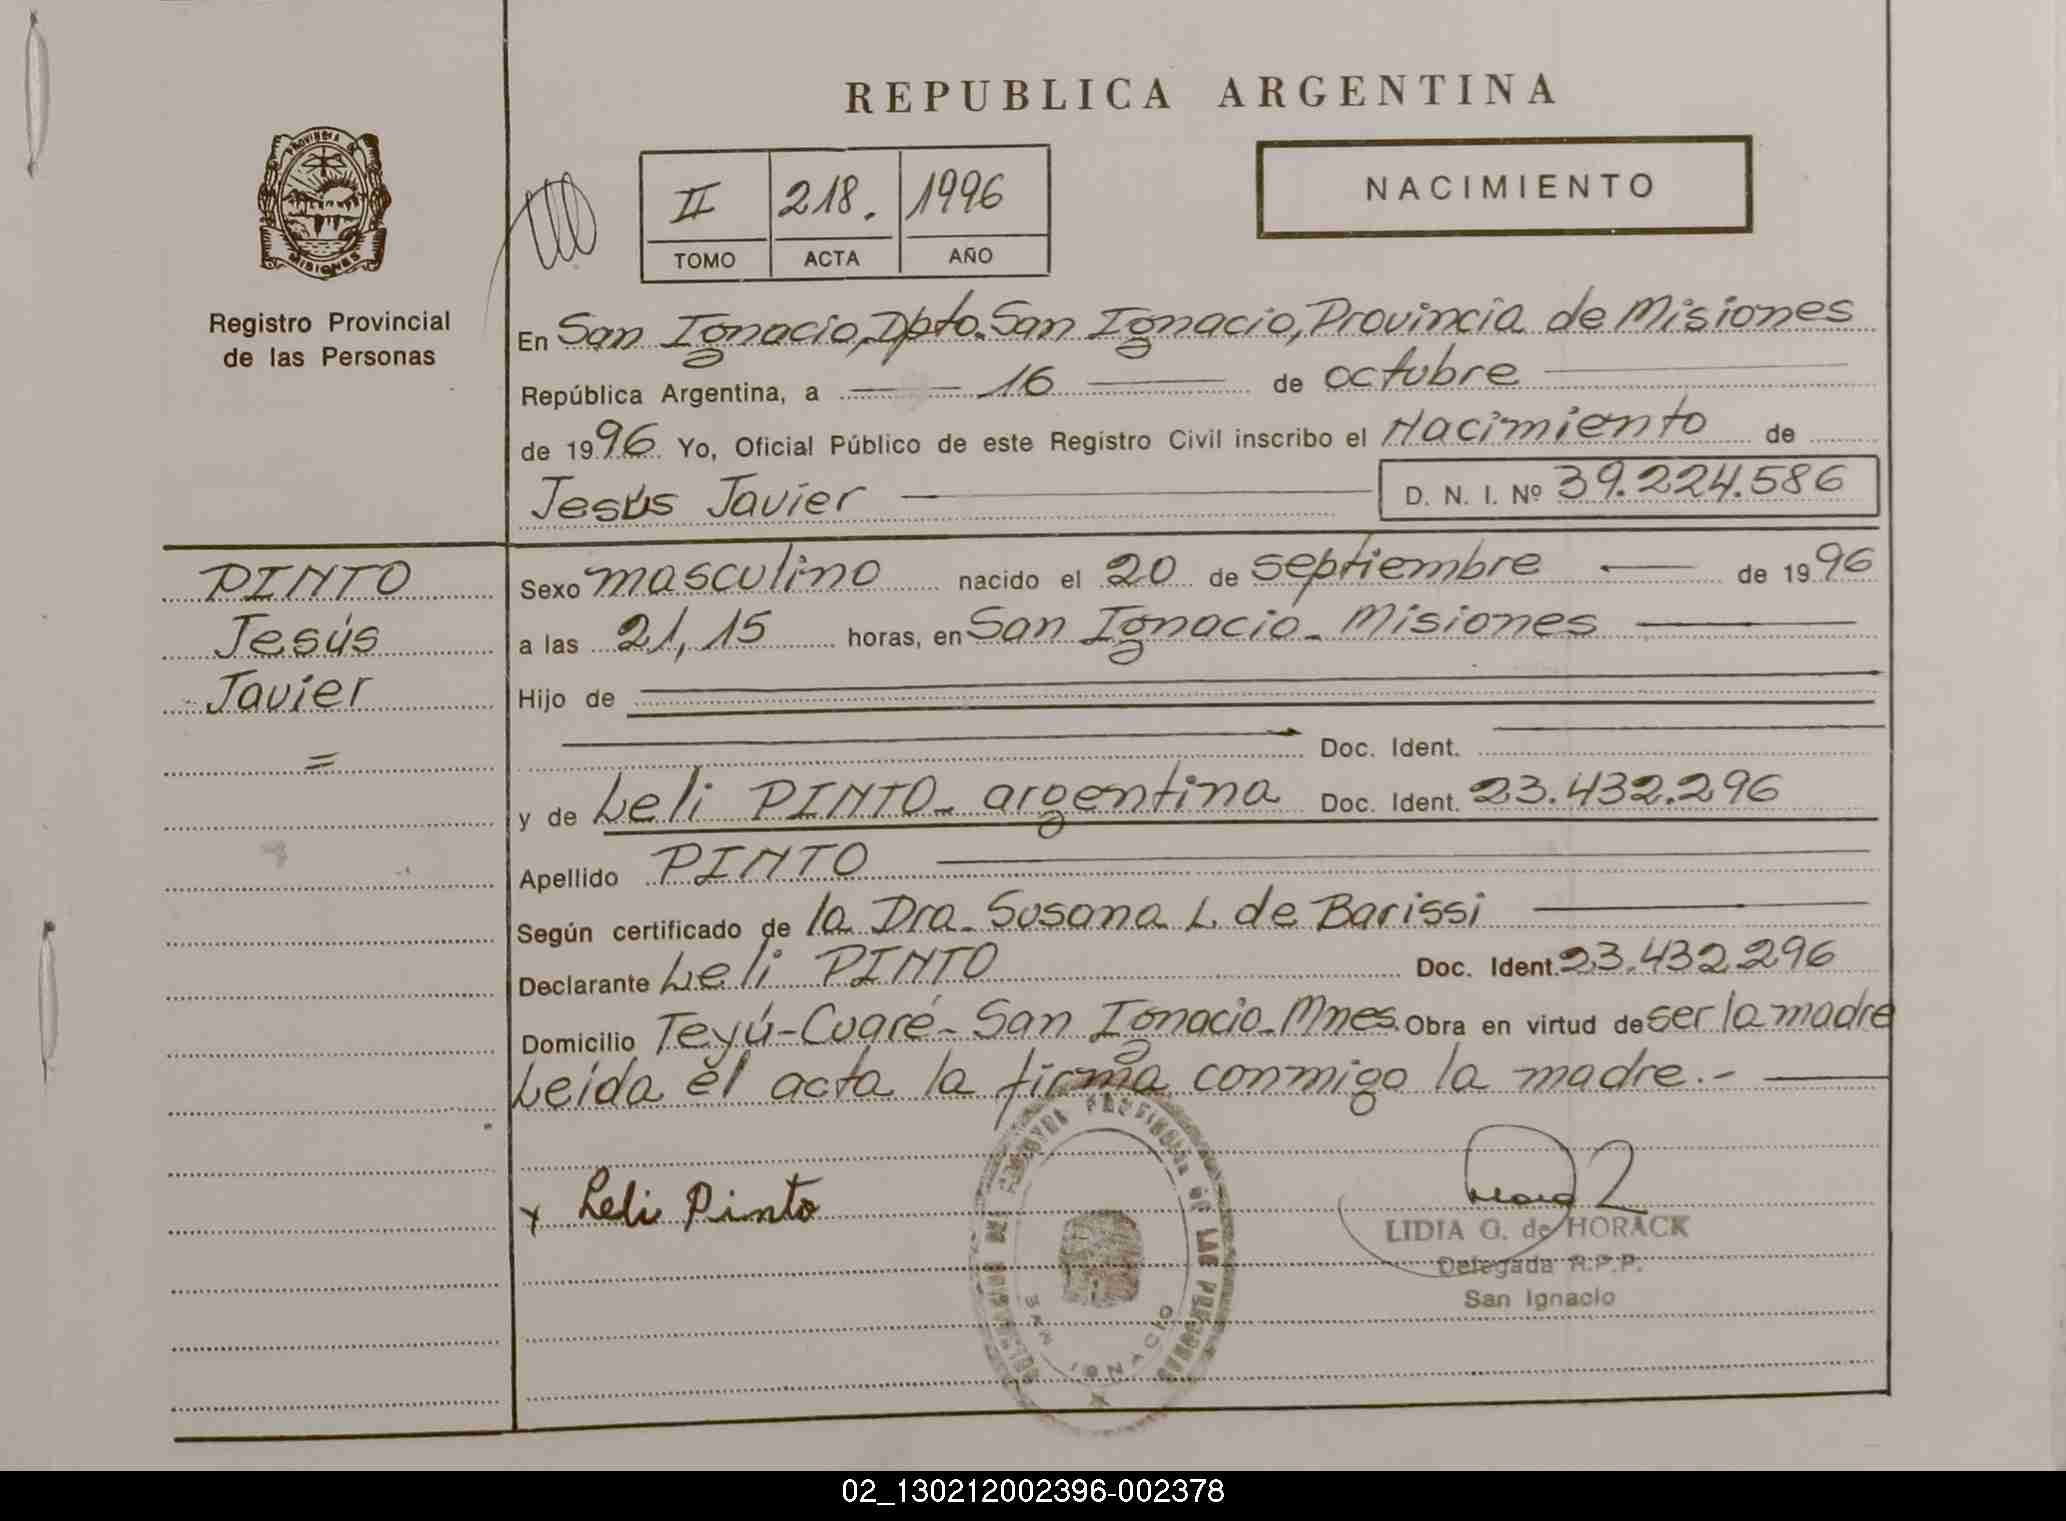 REPUBLICA ARGENTINA
PROVINCIA DE
MISIONES
Registro Provincial
de las Personas
II 218. 1996
TOMO ACTA AÑO
NACIMIENTO
En San Ignacio, Dpto. San Ignacio, Provincia de Misiones
República Argentina, a 16 de octubre
de 1996 Yo, Oficial Público de este Registro Civil inscribo el Nacimiento de
Jesús Javier D. N. I. Nº 39.224.586
PINTO
Jesús
Javier
=
Sexo masculino nacido el 20 de septiembre de 1996
a las 21,15 horas, en San Ignacio - Misiones
Hijo de
Doc. Ident.
y de Leli PINTO - argentina Doc. Ident. 23.432.296
Apellido PINTO
Según certificado de la Dra. Susana L. de Barissi
Declarante Leli PINTO Doc. Ident. 23.432.296
Domicilio Teyú-Cuaré - San Ignacio - Mnes. Obra en virtud de ser la madre
Leída el acta la firma conmigo la madre.-
x Leli Pinto
PROVINCIAL DE LAS PERSONAS
SAN IGNACIO
LIDIA G. de HORACK
Delegada R.P.P.
San Ignacio
02_130212002396-002378